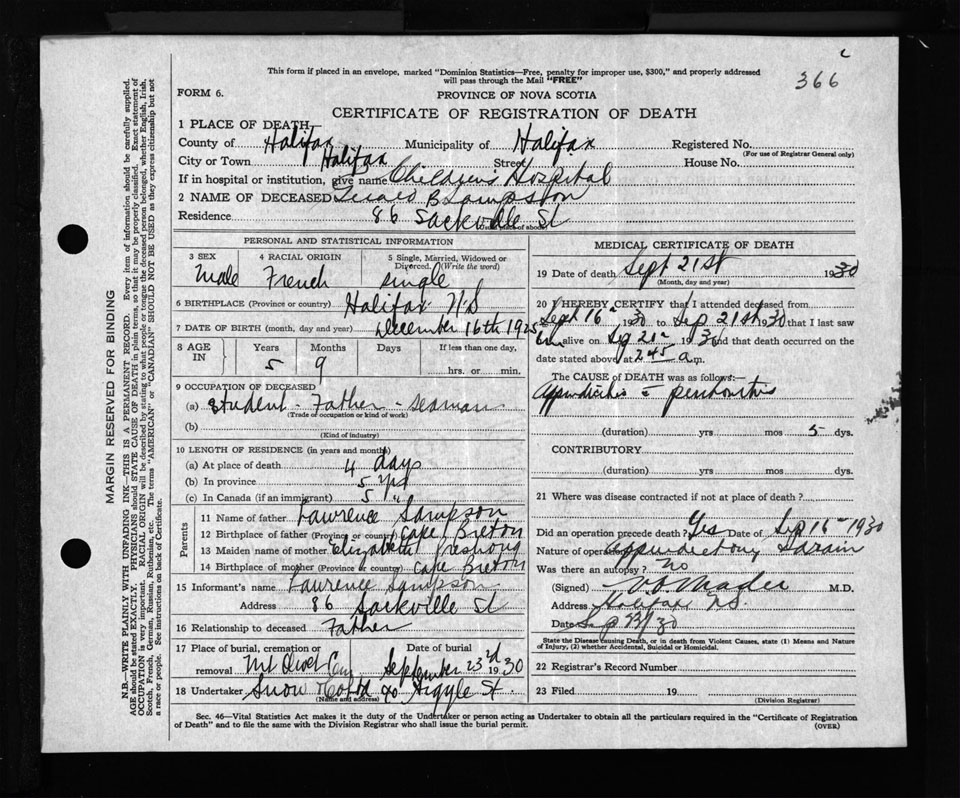 c
366
This form if placed in an envelope, marked "Dominion Statistics—Free, penalty for improper use, $300," and properly addressed
will pass through the Mail "FREE"
FORM 6.
PROVINCE OF NOVA SCOTIA
CERTIFICATE OF REGISTRATION OF DEATH
1 PLACE OF DEATH—
County of Halifax Municipality of Halifax Registered No.
(For use of Registrar General only)
City or Town Halifax Street House No.
If in hospital or institution, give name Children's Hospital
2 NAME OF DECEASED B Sampson
Residence 86 Sackville St
PERSONAL AND STATISTICAL INFORMATION
3 SEX Male
4 RACIAL ORIGIN French
5 Single, Married, Widowed or Divorced. (Write the word) single
6 BIRTHPLACE (Province or country) Halifax N.S
7 DATE OF BIRTH (month, day and year) December 16th 1925
8 AGE IN Years 5 Months 9 Days If less than one day, hrs. or min.
9 OCCUPATION OF DECEASED
(a) Student - Father - Seaman
(Trade of occupation or kind of work)
(b)
(Kind of industry)
10 LENGTH OF RESIDENCE (in years and months)
(a) At place of death 4 days
(b) In province 5 yrs
(c) In Canada (if an immigrant) 5 "
Parents
11 Name of father Lawrence Sampson
12 Birthplace of father (Province or country) Cape Breton
13 Maiden name of mother Elizabeth
14 Birthplace of mother (Province or country) Cape Breton
15 Informant's name Lawrence Sampson
Address 86 Sackville St
16 Relationship to deceased Father
17 Place of burial, cremation or removal Mt Olivet Cem
Date of burial September 23rd 1930
18 Undertaker Snow & Co Ltd 90 Argyle St.
(Name and address)
MEDICAL CERTIFICATE OF DEATH
19 Date of death Sept 21st 1930
(Month, day and year)
20 I HEREBY CERTIFY that I attended deceased from
Sept 16 1930 to Sep 21st 1930 that I last saw
alive on Sep 21st 1930 and that death occurred on the
date stated above at 2.45 a.m.
The CAUSE of DEATH was as follows:—
Appendicitis c peritonitis
(duration) yrs mos 5 dys.
CONTRIBUTORY
(duration) yrs mos dys.
21 Where was disease contracted if not at place of death?
Did an operation precede death? Yes Date of Sep 16 - 1930
Nature of operation Appendectomy & drain
Was there an autopsy? No
(Signed) V.O. Mader M.D.
Address Halifax N.S.
Date Sep 30
State the Disease causing Death, or in death from Violent Causes, state (1) Means and Nature
of Injury, (2) whether Accidental, Suicidal or Homicidal.
22 Registrar's Record Number
23 Filed 19
(Division Registrar)
Sec. 46—Vital Statistics Act makes it the duty of the Undertaker or person acting as Undertaker to obtain all the particulars required in the "Certificate of Registration
of Death" and to file the same with the Division Registrar who shall issue the burial permit.
(OVER)
MARGIN RESERVED FOR BINDING
N.B.—WRITE PLAINLY WITH UNFADING INK—THIS IS A PERMANENT RECORD. Every item of information should be carefully supplied.
AGE should be stated EXACTLY. PHYSICIANS should STATE CAUSE OF DEATH in plain terms, so that it may be properly classified. Exact statement of
OCCUPATION is very important. RACIAL ORIGIN will be described by stating to what people or tongue the deceased person belonged, whether English, Irish,
Scotch, French, German, Russian, Ruthenian, etc. The terms "AMERICAN" or "CANADIAN" SHOULD NOT BE USED as they express citizenship but not
a race or people. See instructions on back of Certificate.